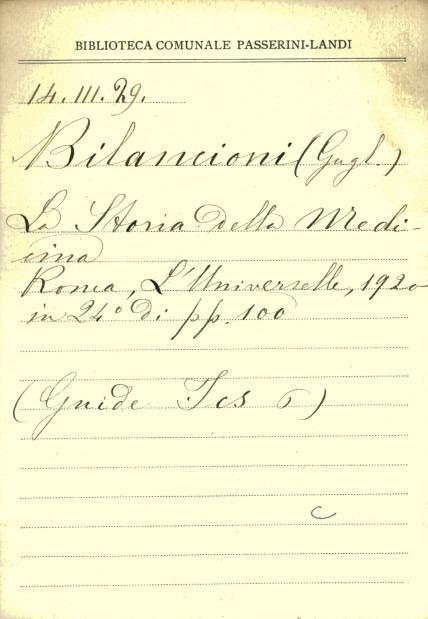 BIBLIOTECA COMUNALE PASSERINI-LANDI
14. III. 29.
Bilancioni (Gugl.)
La Storia della Medi-
cina
Roma, L'Universelle, 1920
in 24° di pp. 100
(Guide Ics 6)
C